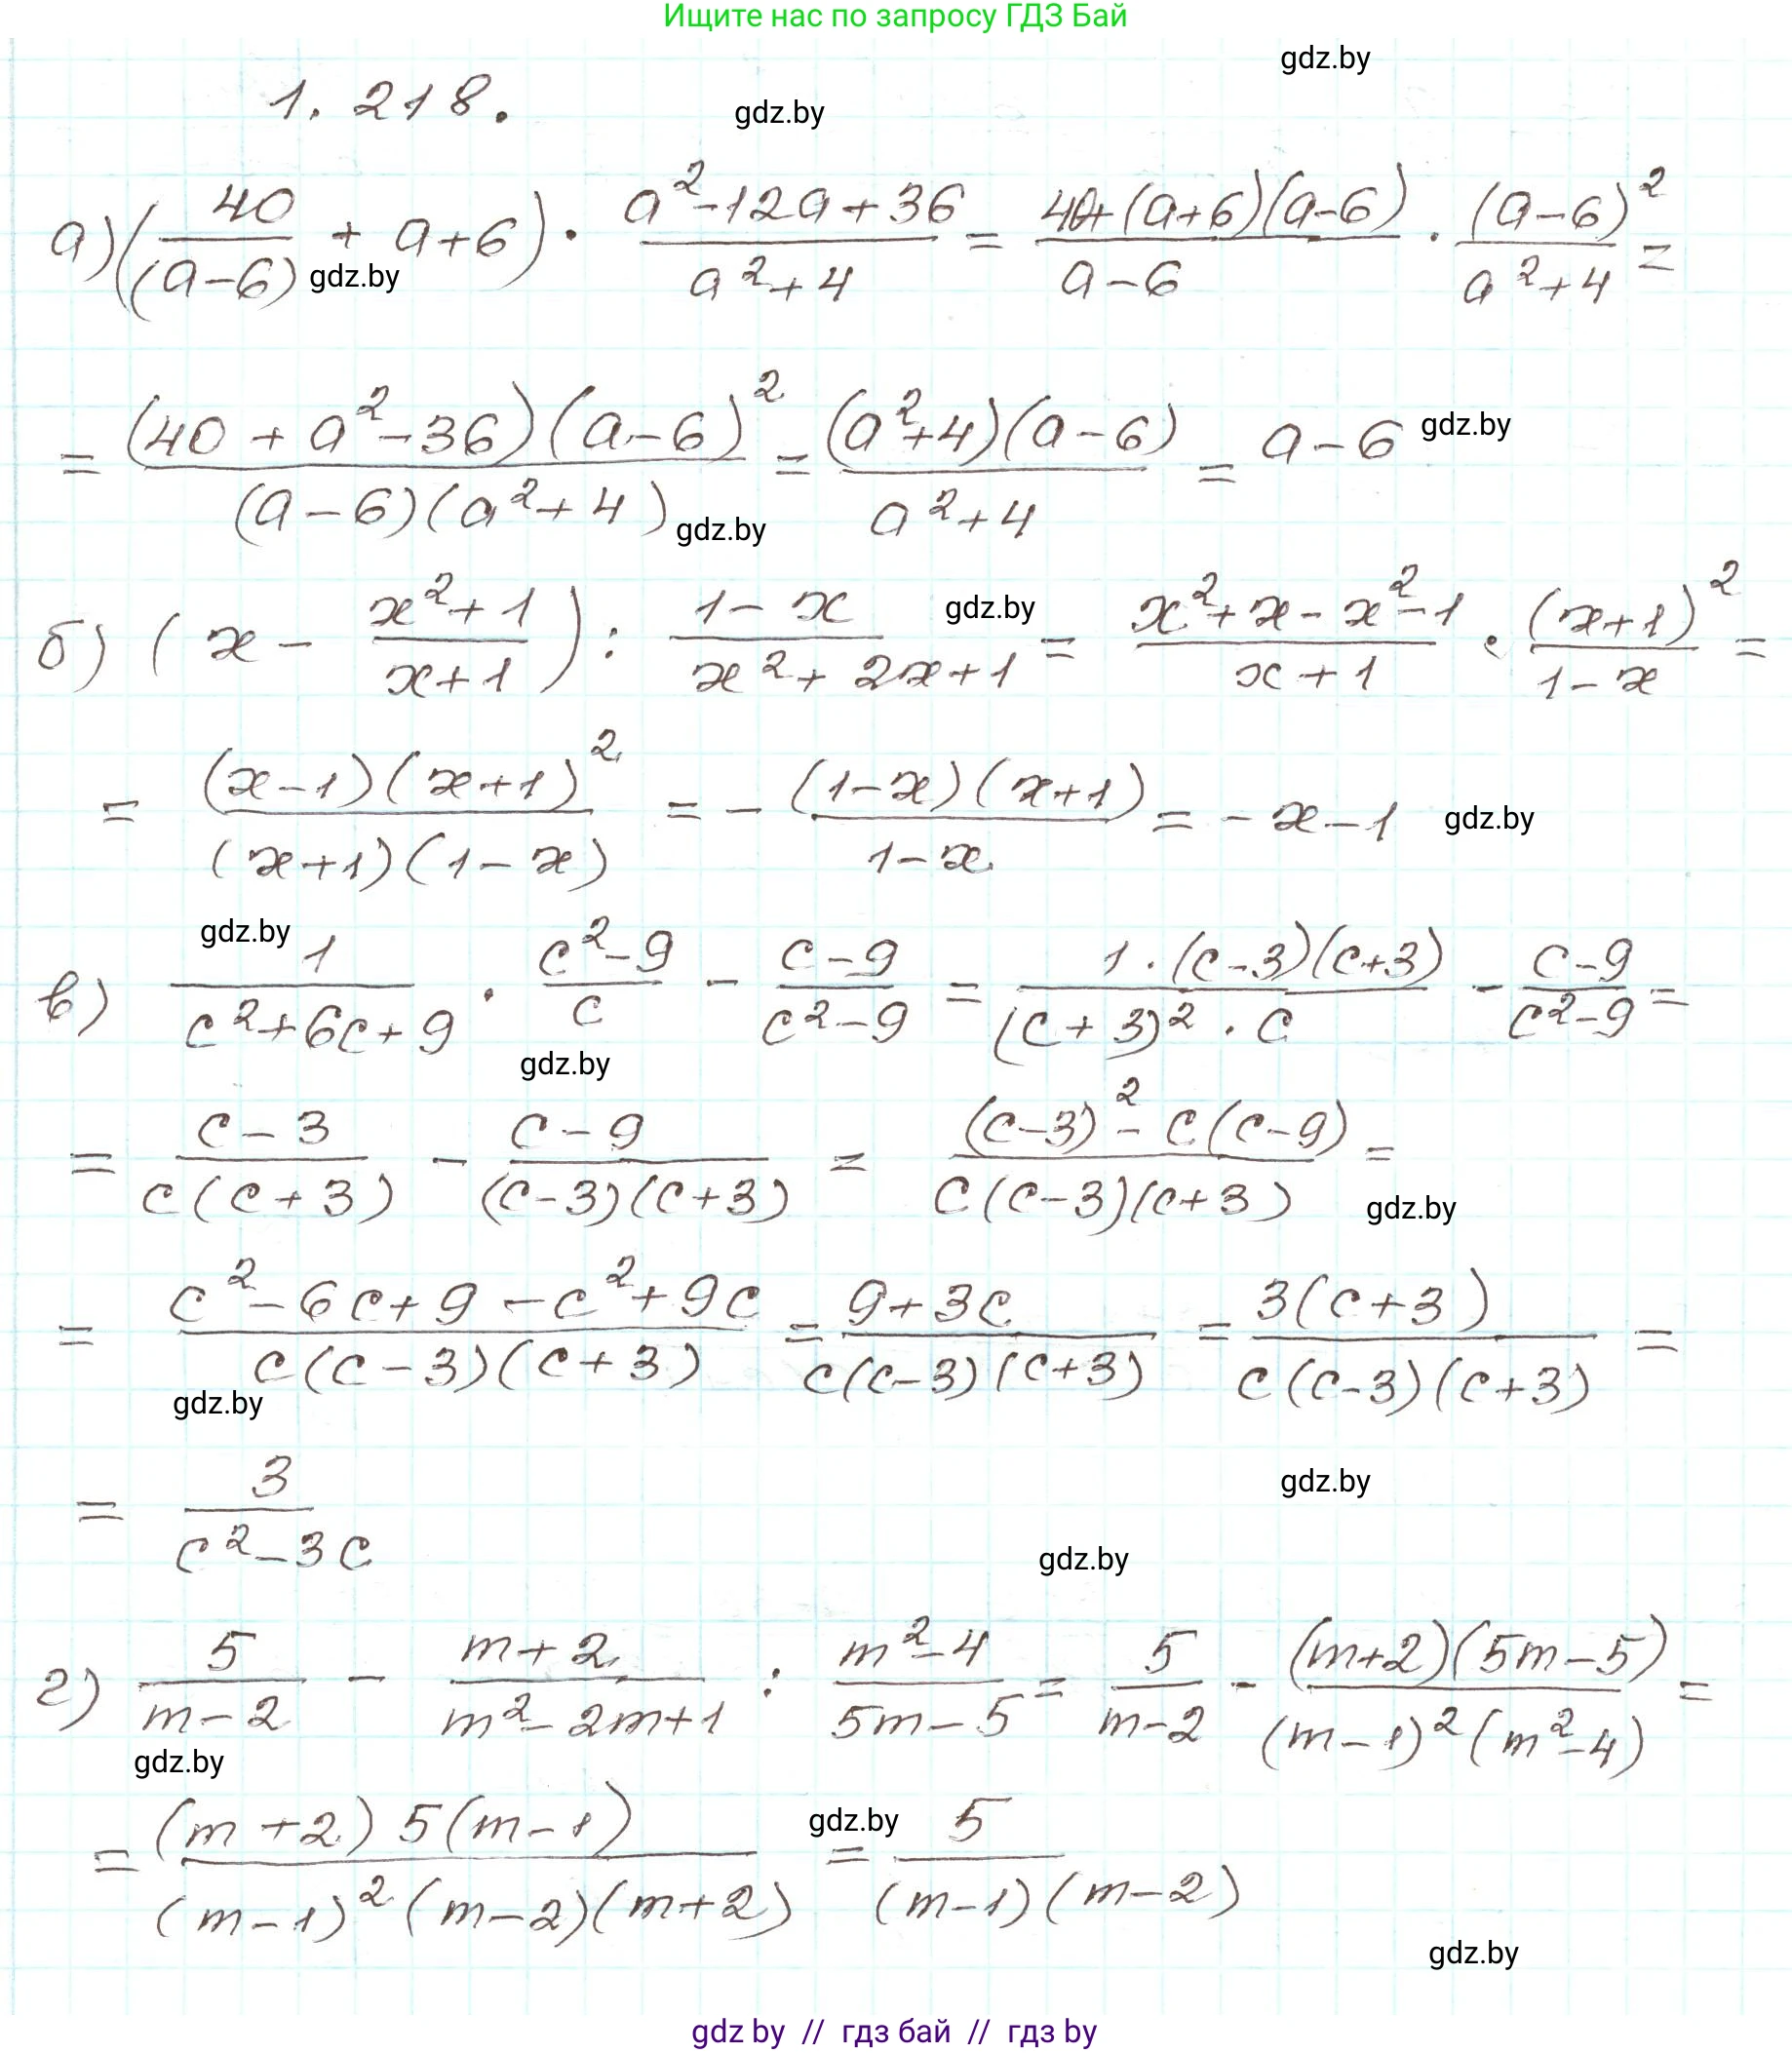 Ищите нас по запросу ГДЗ Бай
gdz.by
1.218.
gdz.by
а) (40/(a-6) + a+6) · (a²-12a+36)/(a²+4) = (40+(a+6)(a-6))/(a-6) · (a-6)²/(a²+4) =
gdz.by
= (40+a²-36)(a-6)²/((a-6)(a²+4)) = (a²+4)(a-6)/(a²+4) = a-6
gdz.by
gdz.by
б) (x - (x²+1)/(x+1)) : (1-x)/(x²+2x+1) = (x²+x-x²-1)/(x+1) · (x+1)²/(1-x) =
gdz.by
= (x-1)(x+1)²/((x+1)(1-x)) = - (1-x)(x+1)/(1-x) = -x-1
gdz.by
gdz.by
в) 1/(c²+6c+9) · (c²-9)/c - (c-9)/(c²-9) = 1·(c-3)(c+3)/((c+3)²·c) - (c-9)/(c²-9) =
gdz.by
= (c-3)/(c(c+3)) - (c-9)/((c-3)(c+3)) = ((c-3)²-c(c-9))/(c(c-3)(c+3)) =
gdz.by
= (c²-6c+9-c²+9c)/(c(c-3)(c+3)) = (9+3c)/(c(c-3)(c+3)) = 3(c+3)/(c(c-3)(c+3)) =
gdz.by
= 3/(c²-3c)
gdz.by
gdz.by
г) 5/(m-2) - (m+2)/(m²-2m+1) : (m²-4)/(5m-5) = 5/(m-2) - (m+2)(5m-5)/((m-1)²(m²-4)) =
gdz.by
= (m+2)5(m-1)/((m-1)²(m-2)(m+2)) = 5/((m-1)(m-2))
gdz.by
gdz.by
gdz by // гдз бай // гдз by